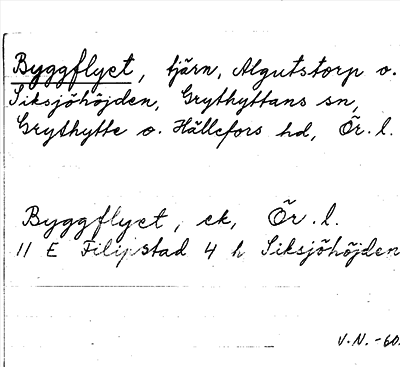 Byggflyet, tjärn, Algutstorp o.
Siksjöhöjden, Grythyttans sn,
Grythytte o. Hällefors hd, Ör. l.
Byggflyet, ek, Ör. l.
11 E Filipstad 4 h Siksjöhöjden
V.N. -60.